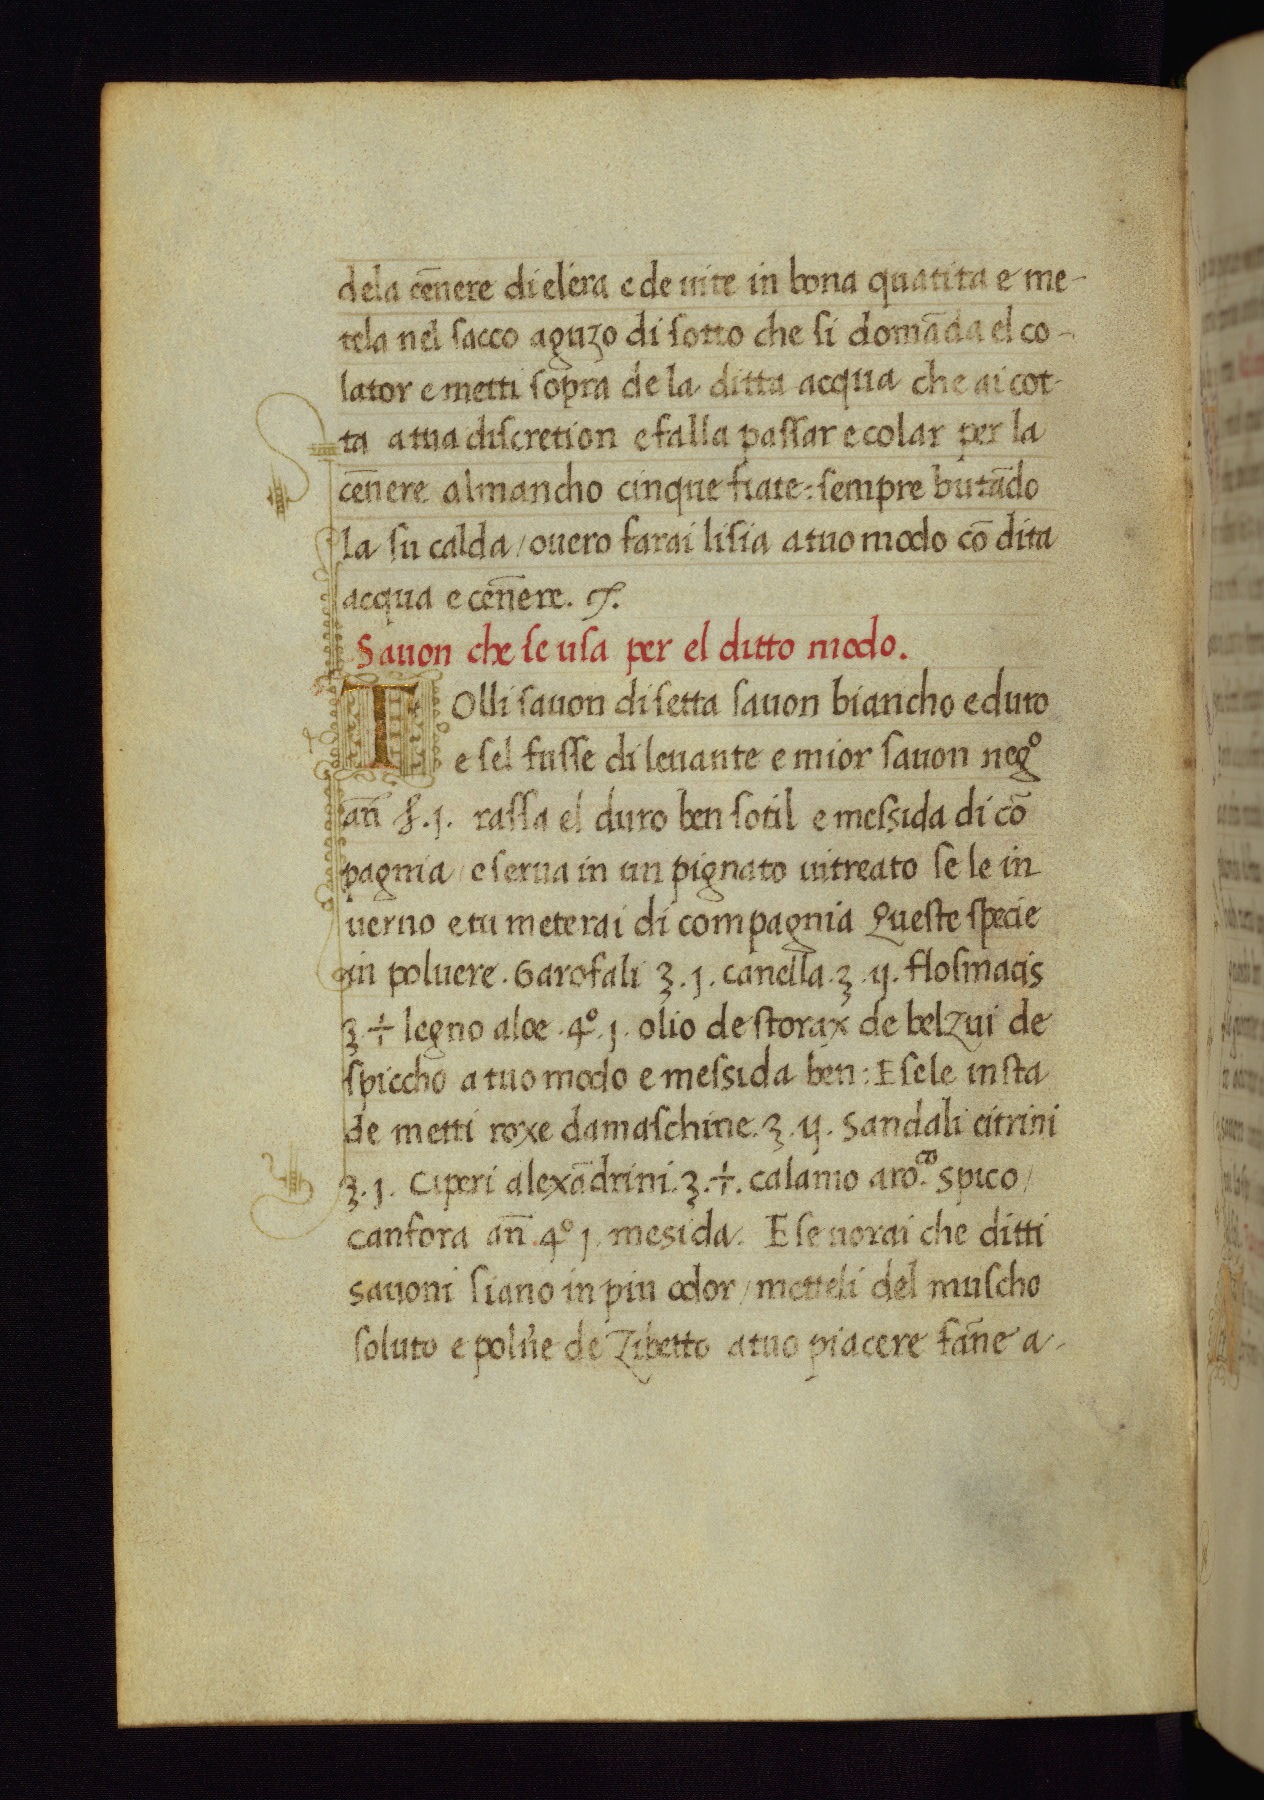 dela cēnere di elera e de uite in bona quatita e me-
tela nel sacco aguzo di sotto che si domāda el co-
lator e metti sopra de la ditta acqua che ai cot-
ta a tua discretion e falla passar e colar per la
cēnere almancho cinque fiate: sempre butādo
la su calda / ouero farai lisia a tuo modo cō dita
acqua e cēnere.
Sauon che se usa per el ditto modo.
TOlli sauon di setta sauon biancho e duro
e sel fusse di leuante e mior sauon negº
añ .j. rassa el duro ben sotil e messida di cō
pagnia / e serua in un pignato uitreato se le in
uerno e tu meterai di compagnia Queste specie
in poluere. Garofali ʒ.j. canella.ʒ.ij. flosmacis
ʒ ÷ legno aloe .4º.j. olio de storax de belzui de
spiccho a tuo modo e messida ben: E sele insta
de metti roxe damaschine.ʒ.ij. Sandali citrini
ʒ.j. Ciperi alexādrini.ʒ.÷. calamo aro.co spico /
canfora añ .4º j. mesida. E se uorai che ditti
sauoni siano in piu odor / metteli del muscho
soluto e polūe de Zibetto a tuo piacere fāne a-